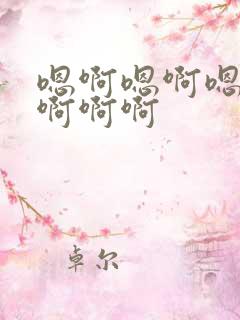 嗯啊嗯啊嗯
啊啊啊
卓尔